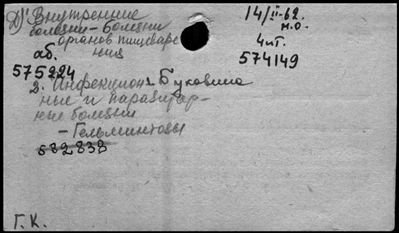 1) Внутренние
болезни - болезни
органов пищеваре
ния
аб.
575224
2. Инфекцион
ные и паразитар-
ные болезни
- Гельминтозы
582838
Буковина
14/II-62.
м.о.
4 чт.
574149
Г. К.